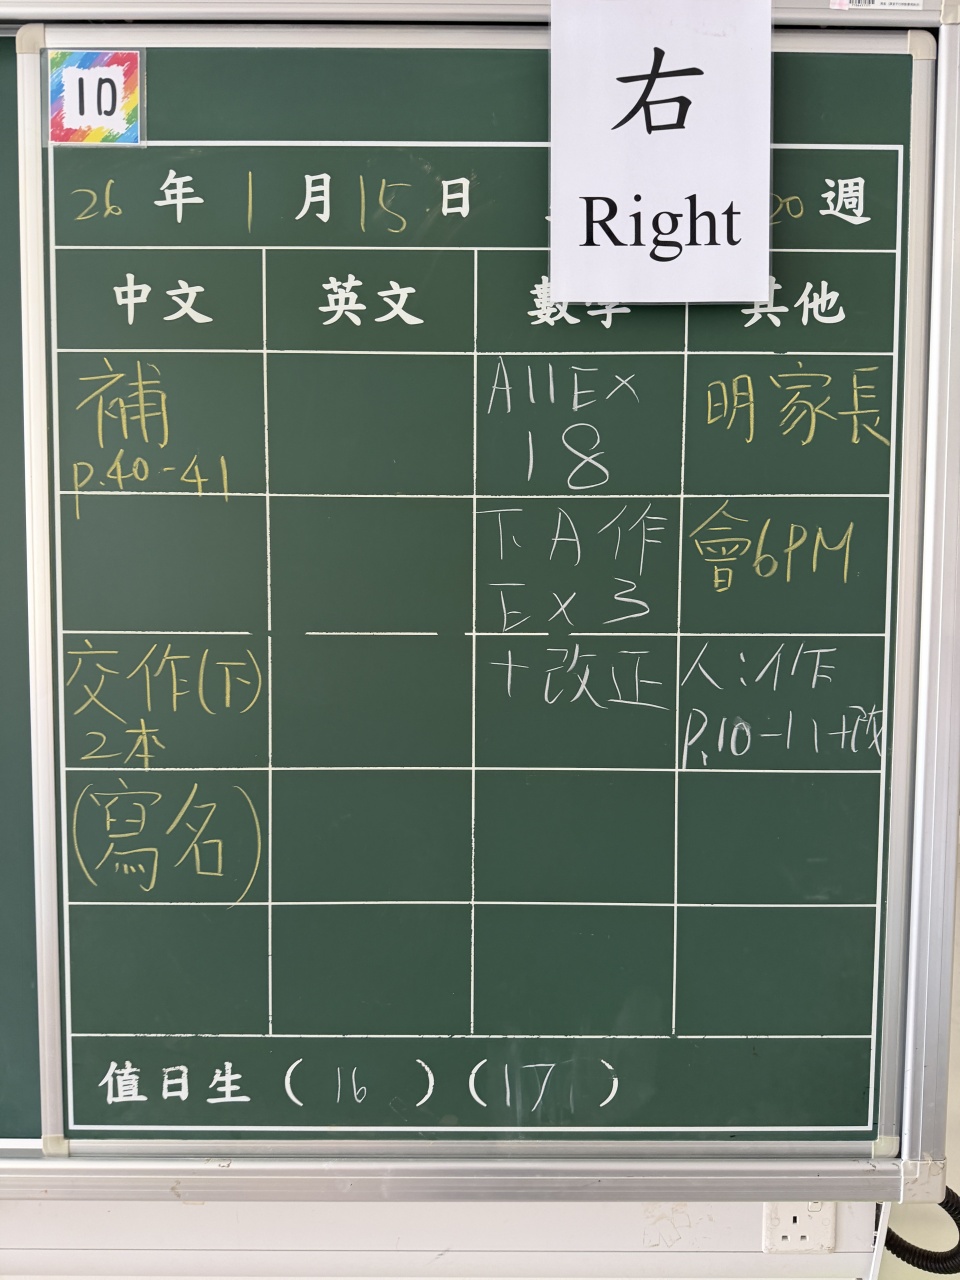 1D
右
Right
26 年 1 月 15 日 20 週
中文 英文 數學 其他
補
p.40-41
A11 Ex
18
明家長
下A作
Ex 3
會6PM
交作(下)
2本
+改正
人:作
p.10-11+改
(寫名)
值日生 ( 16 ) ( 17 )